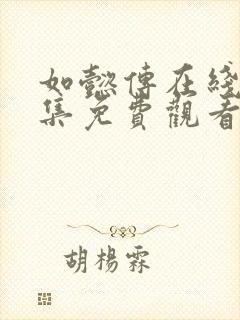 如懿傳在綫
集免費觀看
胡楊霖